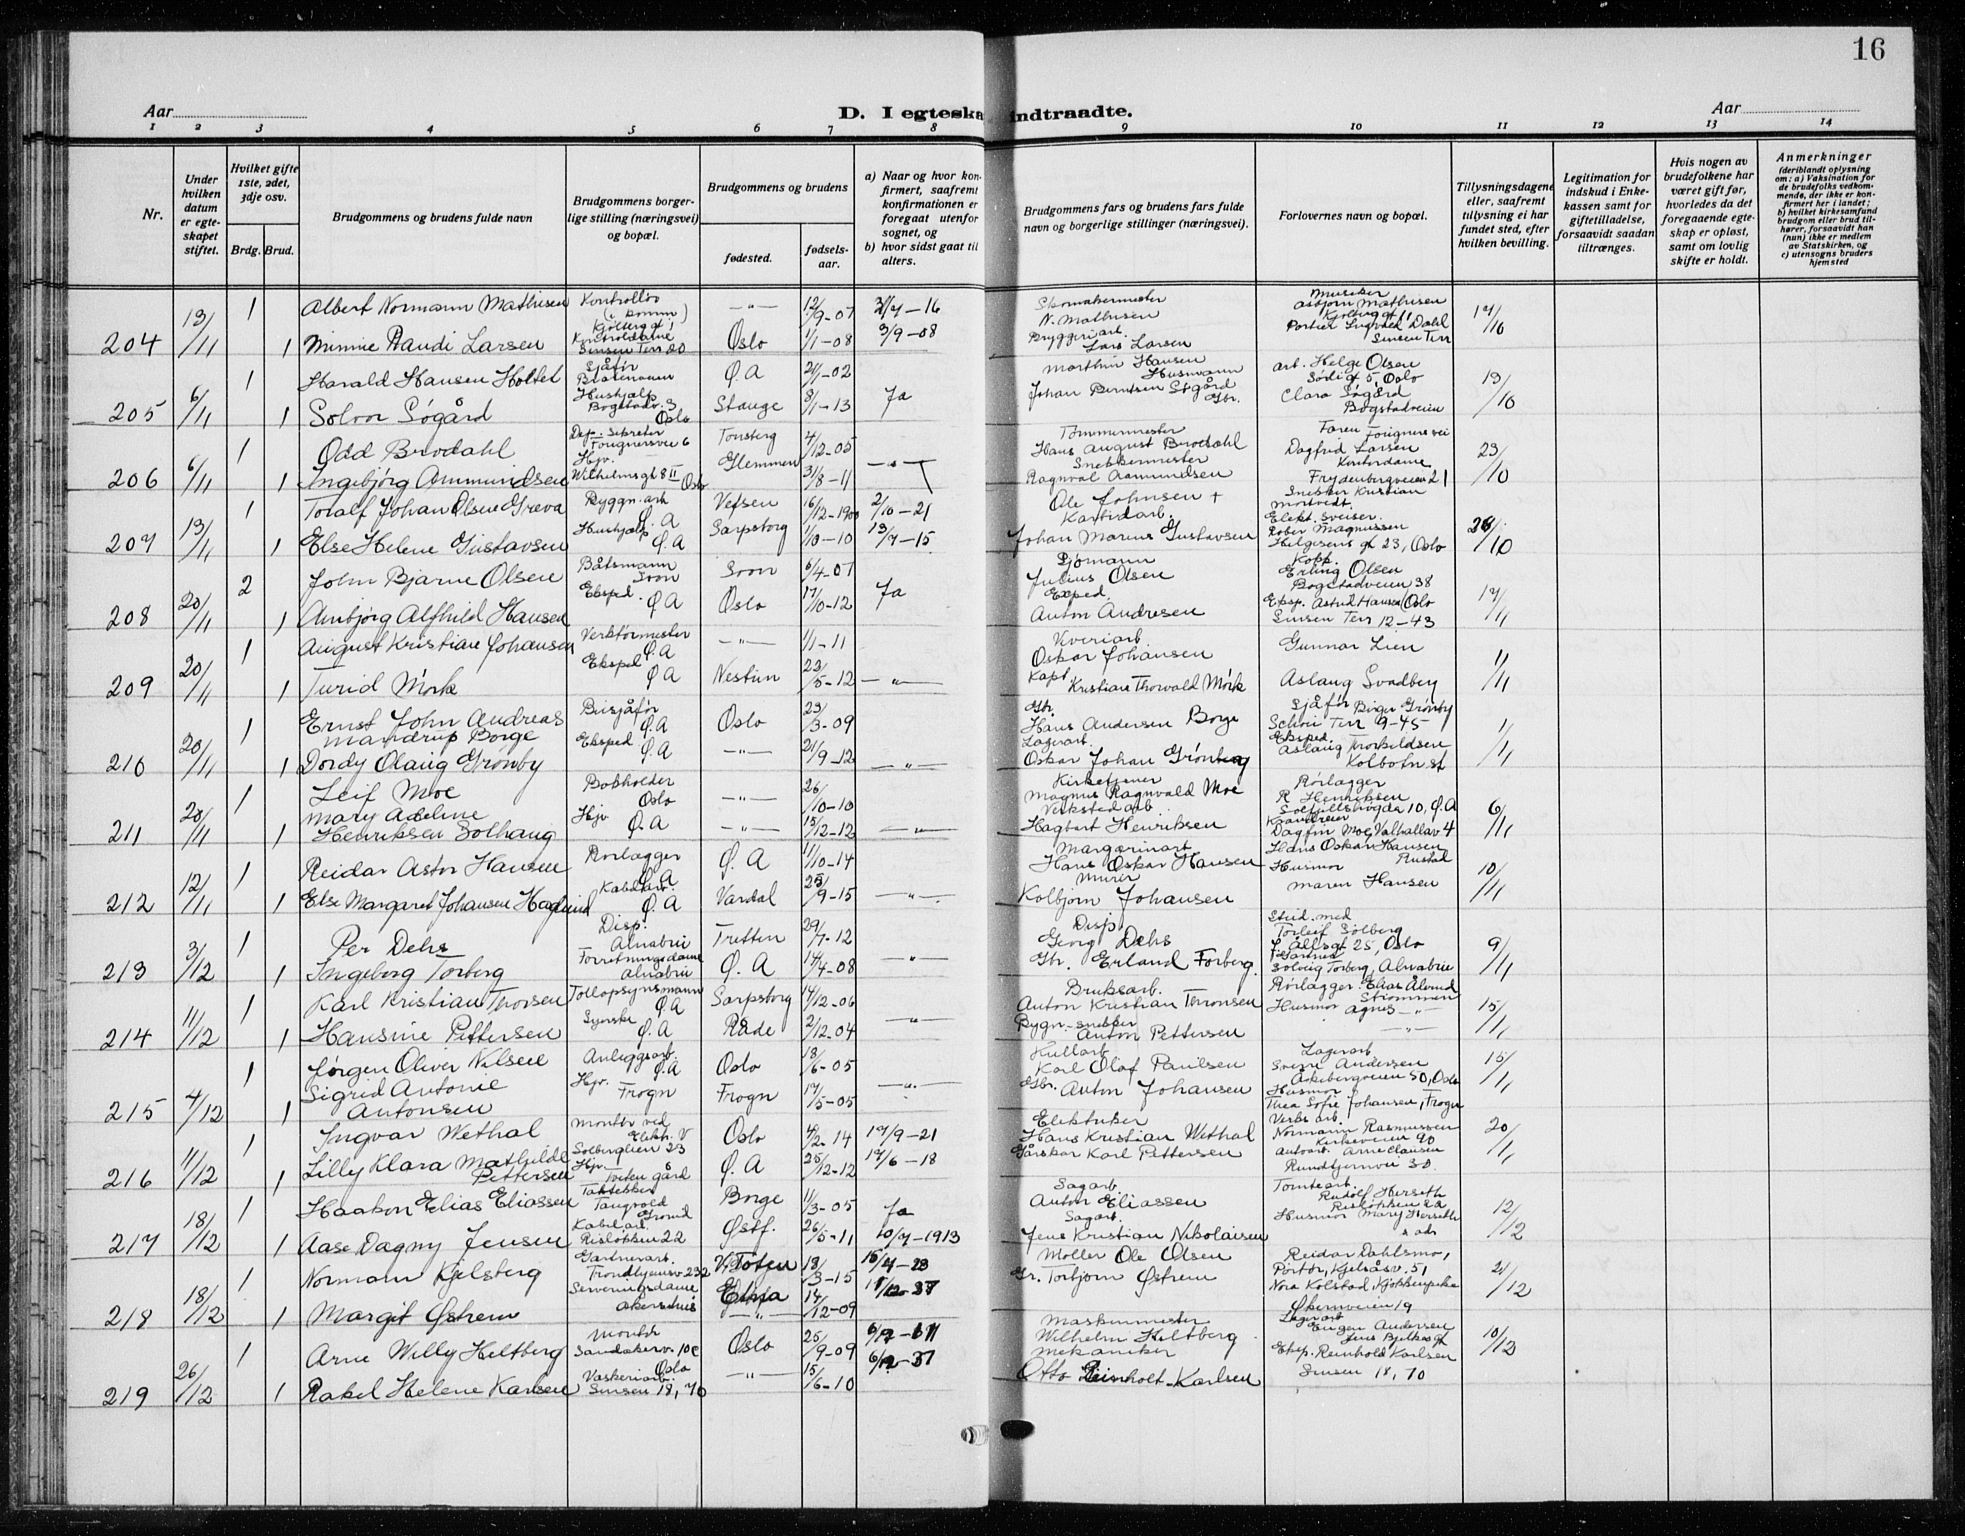 16
Aar
D. I egteska indtraadte.
Aar
1 2 3 4 5 6 7 8 9 10 11 12 13 14
Nr.
Under hvilken datum er egteskapet stiftet.
Hvilket gifte 1ste, 2det, 3dje osv.
Brdg. Brud.
Brudgommens og brudens fulde navn
Brudgommens borgerlige stilling (næringsvei) og bopæl.
Brudgommens og brudens
fødested.
fødselsaar.
a) Naar og hvor konfirmert, saafremt konfirmationen er foregaat utenfor sognet, og
b) hvor sidst gaat til alters.
Brudgommens fars og brudens fars fulde navn og borgerlige stillinger (næringsvei).
Forlovernes navn og bopæl.
Tillysningsdagene eller, saafremt tillysning ei har fundet sted, efter hvilken bevilling.
Legitimation for indskud i Enkekassen samt for giftetilladelse, forsaavidt saadan tiltrænges.
Hvis nogen av brudefolkene har været gift før, hvorledes da det foregaaende egteskap er opløst, samt om lovlig skifte er holdt.
Anmerkninger
(deriblandt oplysning om: a) Vaksination for de brudefolks vedkommende, der ikke er konfirmert her i landet; b) hvilket kirkesamfund brudgom eller brud tilhører, forsaavidt han (hun) ikke er medlem av Statskirken, og c) utensogns bruders hjemsted
204 13/11 1 Albert Normann Mathisen Kontrollør (i komm) 12/9-07 2/7-16 Skomakermester N. Mathisen Musiker Asbjørn Mathisen 17/10
1 Minnie Randi Larsen Kontordame Sinsen Terr 20 Oslo 1/1-08 3/9-08 Bryggeriarb. Lars Larsen Portier Sigvald Dahl Sinsen Terr
205 6/11 1 Harald Hansen Holtet Sjåfør Ø.A 21/1-02 Ja Marthin Hansen Husmann art. Helge Olsen 5, Oslo 19/10
1 Solvor Søgård Hushjelp Bogstadv. 3 Oslo Stange 8/1-13 Johan Berntsen Søgård Gbr. Clara Søgård Bogstadveien
206 6/11 1 Odd Brodahl Dep. sekretær Frognersvei 6 Tønsberg 4/12-05 -"- Tømmermester Hans August Brodahl Dagfrid Larsen Kontordame 23/10
1 Ingebjørg Ammundsen Hjv. Wilhelmsgt 8 II Oslo Glemmen 31/8-11 Snekkermester Ragnvald Aamundsen Frydenbergveien 21
207 13/11 1 Toralf Johan Olsen Græva Byggn. arb Ø.A Vefsen 16/12-1900 2/10-21 Ole Johnsen + Snekker Kristian Mortvedt. 26/10
1 Else Helene Gustavsen Hushjelp Ø.A Sarpsborg 1/10-10 13/7-15 Johan Marius Gustavsen Elekt. sveiser. Magnussen Helgesens gt 23, Oslo
208 20/11 2 John Bjarne Olsen Båtsmann Svon 6/4-07 Ja Sjømann Julius Olsen Erling Olsen Bogstadveien 38 17/11
1 Ambjørg Alfhild Hansen Eksped. Ø A Oslo 17/10-12 Exped. Anton Andresen Eksp. Astrid Hansen Oslo Sinsen Terr 12-43
209 20/11 1 August Kristian Johansen Verktørmester Ø.A -"- 1/1-11 -"- Oskar Johansen Gunnar Lien 1/11
1 Turid Mörk Eksped Ø A Nestun 23/5-12 Kapt Kristian Thorvald Mörk Aslaug Svadberg
210 20/11 1 Ernst John Andreas Mandrup Borge Ø.A Oslo 23/3-09 -"- Gbr. Hans Andersen Borge Sjåfør Birger Grønby Terr 9-45 1/11
1 Dordy Olaug Grønby Eksped Ø.A -"- 21/9-12 Lagerarb. Oskar Johan Grønberg Eksped. Aslaug Thorkildsen Kolbotn st
211 20/11 1 Leif Moe Bokholder Oslo -"- 26/10-10 -"- Kirketjener Magnus Ragnvald Moe Rørlegger R Henriksen 10, Ø.A 6/11
1 Mary Adeline Henriksen Solhaug Hjv Ø.A -"- 15/12-12 Verksted arb Hagbart Henriksen Dagfin Moe, Valhallav 4
212 12/11 1 Reidar Astor Hansen Rørlegger Ø A Ø. A 11/10-14 -"- Margarinarb Hans Oskar Hansen Hans Oskar Hansen Rustad 10/11
1 Else Margaret Johansen Haglund Kabelarb. Ø.A Vardal 25/9-15 Murer Kolbjørn Johansen Husmor Maren Hansen
213 3/12 1 Per Dehs Disp. Alnabru Tretten 29/7-12 -"- Disp Georg Dehs Stud. med Torleif Solberg 25, Oslo 9/11
1 Ingeborg Torberg Forretningsdame Alnabru Ø. A 14/4-08 Gbr. Erland Forberg. Solveig Torberg, Alnabru
214 11/12 1 Karl Kristian Thorsen Tollopsynsmann Ø A Sarpsborg 17/12-06 -"- Bruksarb. Anton Kristian Thronsen Rørlegger Elias Ålerud Strømmen 15/11
1 Hansine Pettersen Syerske Ø.A Råde 2/12-04 Bygn. snekker Anton Pettersen Husmor Agnes -"-
215 4/12 1 Jørgen Oliver Nilsen Anleggsarb. Ø A Oslo 18/6-05 -"- Karl Olaf Paulsen Lagerarb Sverre Andersen Åkebergveien 50, Oslo 15/11
1 Sigrid Antonie Antonsen Hjv. Frogn Frogn 17/5-05 Gbr. Anton Johansen Husmor Thea Sofie Johansen, Frogn
216 11/12 1 Ingvar Wethal Montør ved Elektr. V Solberglien 23 Oslo 4/2-14 17/9-21 Elektriker Hans Kristian Wethal Verks arb. Normann Rasmussen Kirkeveien 90 20/11
1 Lilly Klara Mathilde Pettersen Hjv. Tveten gård Ø. A 25/12-12 17/6-18 Gårdskar Karl Pettersen Autoarb. Arne Clausen Rundtjernvei 30.
217 18/12 1 Haakon Elias Eliassen Taktekker Borge 11/3-05 Ja Sagarb. Anton Eliassen Tomtearb. Rudolf Herseth Risløkken 22 12/12
1 Aase Dagny Jensen Kabelarb. Risløkken 22 Østf. 26/5-11 10/7-1913 Sagarb. Jens Kristian Nikolaisen Husmor Mary Herseth
218 18/12 1 Normann Kjelsberg Gartnerarb. Trondhjemsv. 232 V. Toten 18/3-15 15/4-28 Møller Ole Olsen Reidar Dahlsmo, Portør, Kjelsåsv. 51, 21/12
1 Margit Østrem Serveringsdame Akershus Etna 14/12-09 Gr. Torbjørn Østrem Nora Kolstad, Kjøkkenpike Økernveien 19
219 26/12 1 Arne Willy Heltberg Montør Sandakerv. 10c Oslo Oslo 25/9-09 Maskinmester Wilhelm Heltberg Lagerarb Eugen Andersen Jens Bjelkes gt 10/12
1 Rakel Helene Karlsen Vaskeriarb. Sinsen 18, 70 -"- 15/6-10 6/12-37 Mekaniker Otto Reinholt Karlsen Eksp. Reinhold Karlsen Sinsen 18, 70